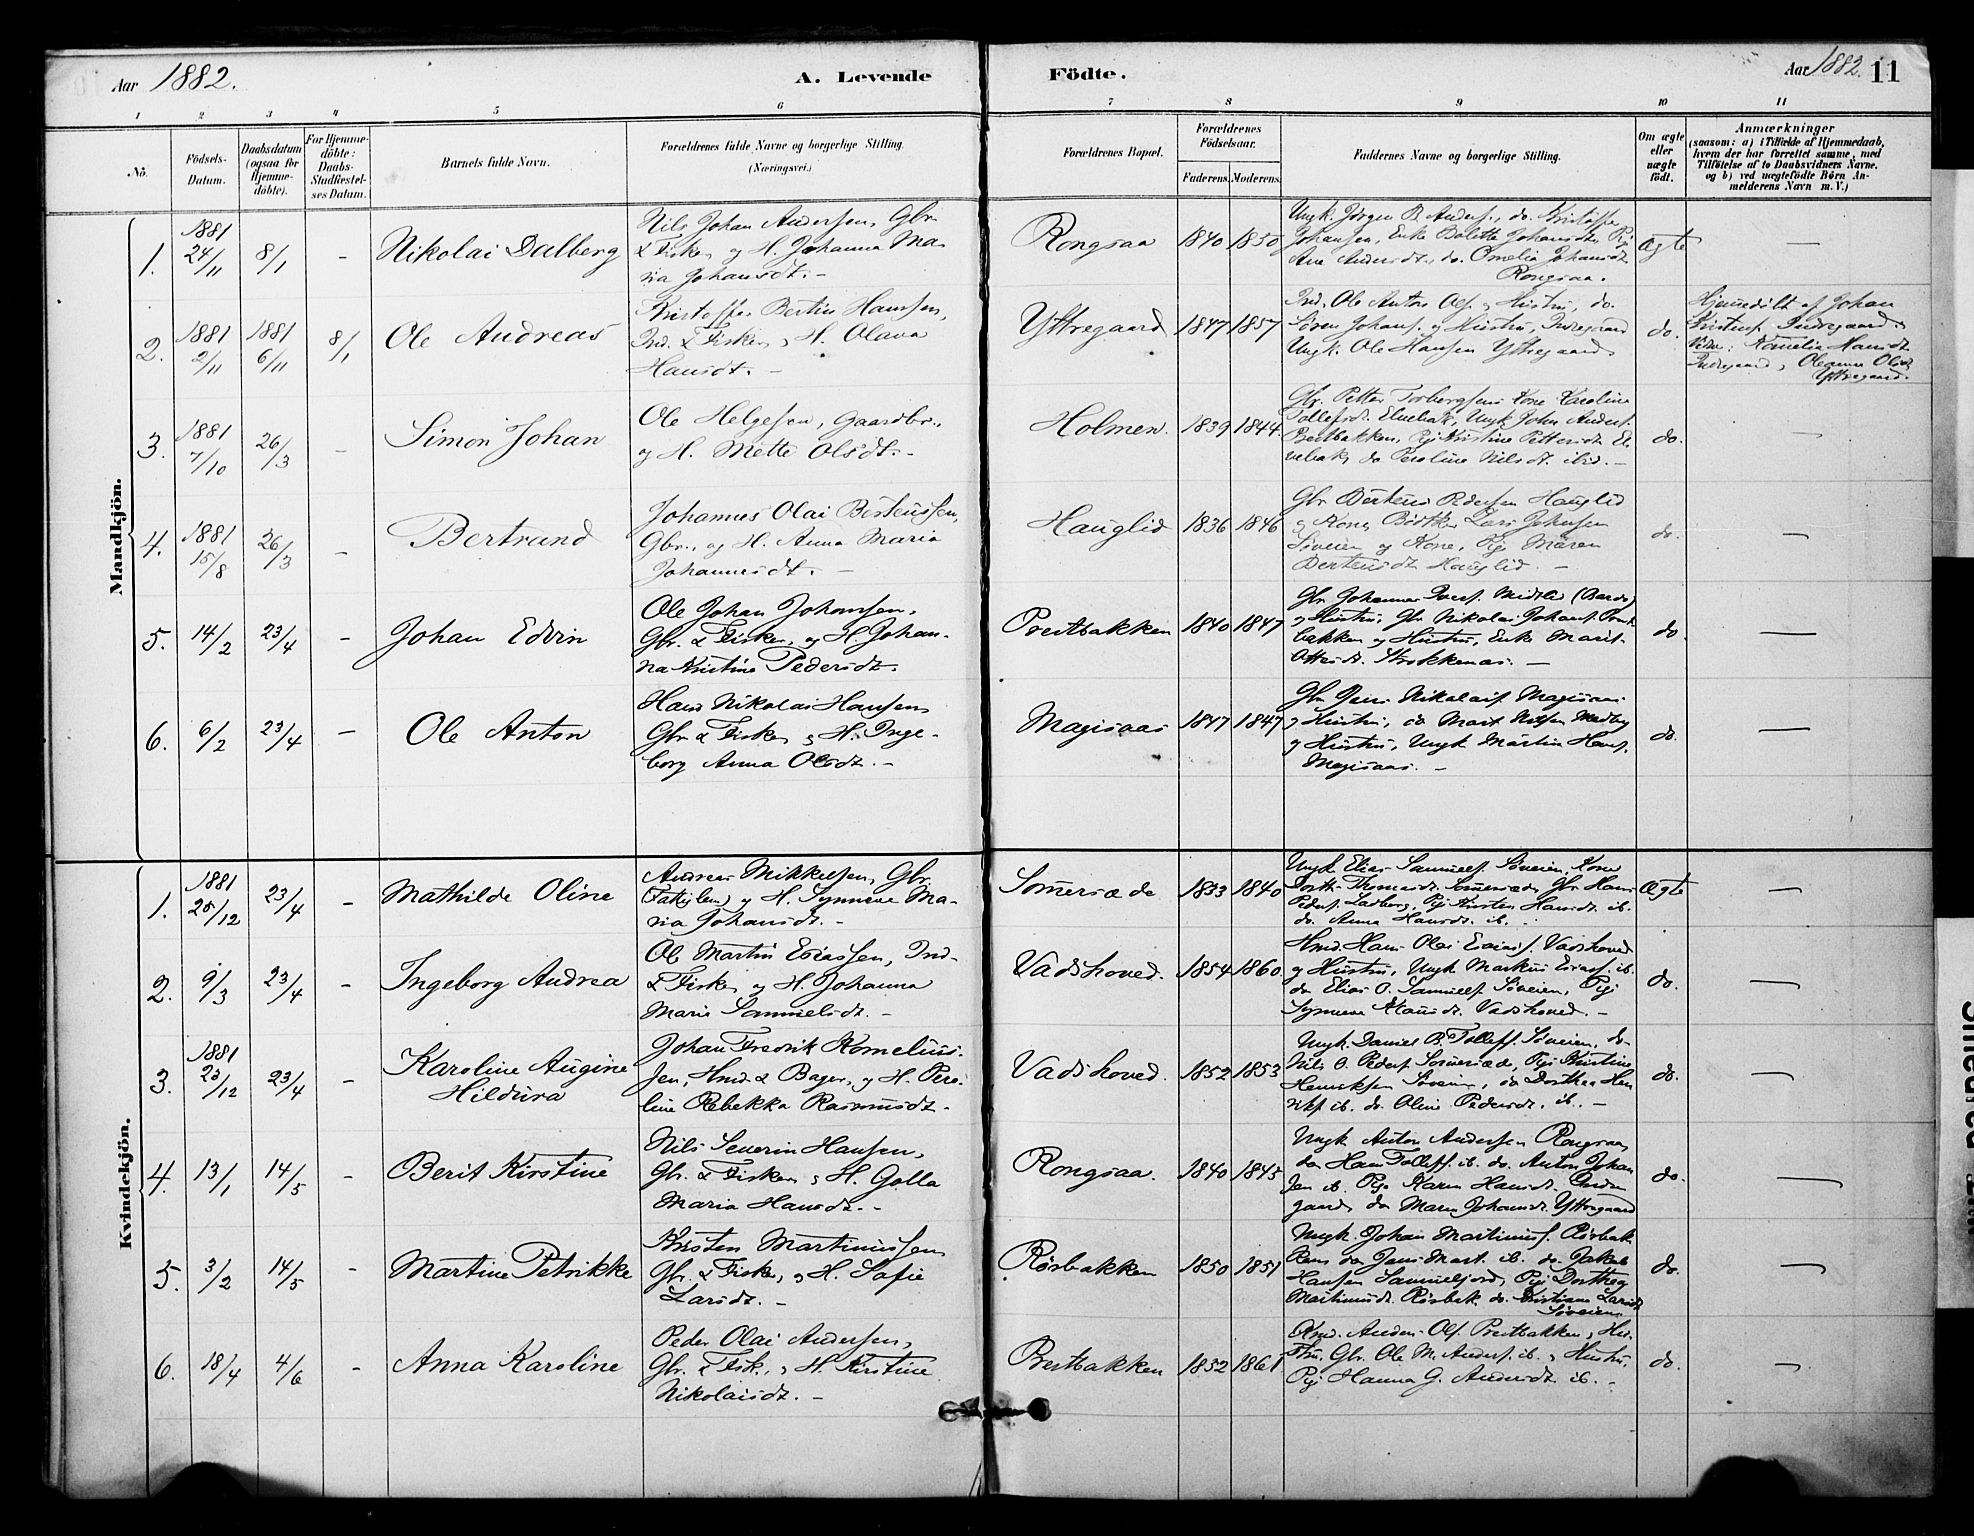 Aar 1882.
A. Levende
Födte.
Aar 1882. 11
1 2 3 4 5 6 7 8 9 10 11
No.
Födsels-
Datum.
Daabsdatum
(ogsaa for
Hjemme-
döbte).
For Hjemme-
döbte:
Daabs-
Stadfæstel-
ses Datum.
Barnets fulde Navn.
Forældrenes fulde Navne og borgerlige Stilling.
(Næringsvei.)
Forældrenes Bopæl.
Forældrenes
Födselsaar.
Faderens. Moderens.
Faddernes Navne og borgerlige Stilling.
Om ægte
eller
uægte
födt.
Anmærkninger
(saasom: a) i Tilfælde af Hjemmedaab,
hvem der har forrettet samme, med
Tilföielse af to Daabsvidners Navne,
og b) ved uægtefödte Børn An-
melderens Navn m. V.)
Mandkjön.
1. 1881 24/11 8/1 - Nikolai Dalberg
Nils Johan Andersen, Gbr.
& Fisker, og H. Johanna Ma-
ria Johansdt. -
Rongsaa 1840 1850
Ungk. Jørgen B. Anders., do. Kristoffer
Johansen, Enke Bolette Johansdt., Pig.
Ane Andersdt., do. Johansdt.
Rongsaa.
Ægte —
2. 1881 2/11 1881 6/11 8/1 Ole Andreas
Kristoffer Bertin Hansen,
Ind. & Fisker, og H. Olava
Hansdt. -
Yttregaard 1847 1857
Ind. Ole Anton Ols. og Hustru, do.
Søren Johans. og Hustru, Indregaard
Ungk. Ole Hansen Yttregaard.
do.
Hjemmedöbt af Johan
Indregaard.
Vidn: Kornelia Hansdt
Indregaard, Oleanna Olsdt
Yttregaard.
3. 1881 7/10 26/3 - Simon Johan
Ole Helgesen, Gaardbr.,
og H. Mette Olsdt. -
Holmen. 1839 1844.
Gbr. Petter Torbergsen, Kone Karoline
Tollefsdt. Elvebak, Ungk John Anders.
Prestbakken, Pig. Kristine Pettersdt. El-
vebak, do Peroline Nilsdt. ibid. -
do. —
4. 1881 15/8 26/3 - Bertrand
Johannes Olai Berteussen,
Gbr., og H. Anna Maria
Johannesdt. -
Hauglid 1836 1846
Gbr Berteus Pedersen Hauglid
og Kone, Lars Johnsen
Søveien og Kone, Pig. Maren
Berteusdt Hauglid. -
do. —
5. 14/2 23/4 - Johan Edvin
Ole Johan Johansen,
Gbr. & Fisker, og H. Johan-
na Kristine Pedersdt.
Prestbakken 1840 1847
Gbr Johannes Midtlid
og Hustru, Gbr Nikolai Johans. Prest-
bakken og Hustru, Enke Marit
Ottesdt. Strokkenæs. -
do. —
6. 6/2 23/4 - Ole Anton
Hans Nikolai Hansen
Gbr & Fisker, og H. Inge-
borg Anna Olsdt. -
Magisaas 1847 1847
Gbr Jens Nikolais. Magisaas
og Hustru, do Mart. Medby
og Hustru, Ungk Martin Hans.
Magisaas. -
do. —
Kvindekjön.
1. 1881 25/12 23/4 - Mathilde Oline
Andreas Mikkelsen, Gbr.
og H. Synneve Ma-
ria Johansdt. -
Somersæde 1833 1840
Ungk Elias Samuels. Søveien, Kone
Dorth. Thomasdt. Somersæde, Gbr Hans
Peders. Ladberg, Pig. Kirsten Hansdt ib.
do. Anna Hansdt. ib.
Ægte —
2. 9/3 23/4 - Ingeborg Andrea
Ole Martin Esiassen, Ind.
& Fisker, og H. Johanna
Marie Samuelsdt. -
Vadshoved. 1854 1860.
Hmd. Hans Olai Esias. Vadshoved
og Hustru, Ungk Markus Esias. ib.
do Elias O. Samuels. Søveien, Pig
Synneve Hansdt. Vadshoved. -
do. —
3. 1881 23/12 23/4 - Karoline Augine
Hildura
Johan Fredrik Kornelius-
sen, Hmd. & Bager, og H. Pero-
line Rebekka Rasmusdt. -
Vadshoved. 1852 1853
Ungk. Daniel B. Tollefs. Søveien, do
Nils O. Peders. Somersæde, Pig. Kristine
Henriksen Søveien, do Dorthea Hen-
riks. ib. do. Oline Pedersdt. ib. -
do. —
4. 13/1 14/5 - Berit Kirstine
Nils Severin Hansen,
Gbr. & Fisker, og H. Golla
Maria Hansdt. -
Rongsaa. 1840 1845
Ungk Anton Andersen Rongsaa,
do Hans Tollefs. ib. do. Anton Johan-
sen ib. Pige Karen Hansdt. Indre-
gaard, do Maren Johansdt. Yttregaard
do. —
5. 3/2 14/5 - Martine Petrikke
Kristen Martinussen
Gbr. & Fisker, og H. Sofie
Larsdt. -
Rösbakken 1850 1851
Ungk. Johan Martinus. Rösbak-
ken, do Jens Mart. ib. do. Jakob
Hansen Sammelsjord, Pig. Dorthea
Martinusdt. Rösbak. do. Kristiane Larsdt
Søveien
do. —
6. 18/4 4/6 - Anna Karoline
Peder Olai Andersen,
Gbr. & Fisk., og H. Kirstine
Nikolaisdt. -
Prestbakken 1852 1861
Hmd. Anders Ols. Prestbakken, Hu-
stru, Gbr. Ole M. Anders. ib. og Hustru,
Pig Hanna G. Andersdt ib. -
do. —